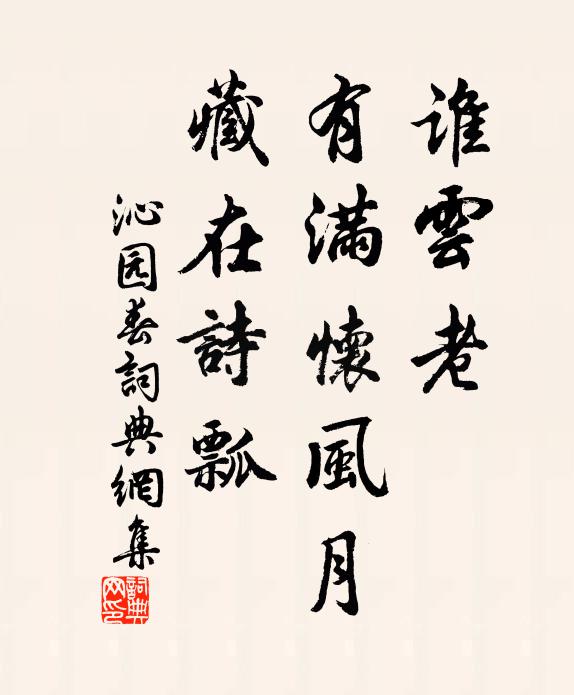 誰雲老
有滿懷風月
藏在詩瓢
沁园春詞典網集
詞典网印